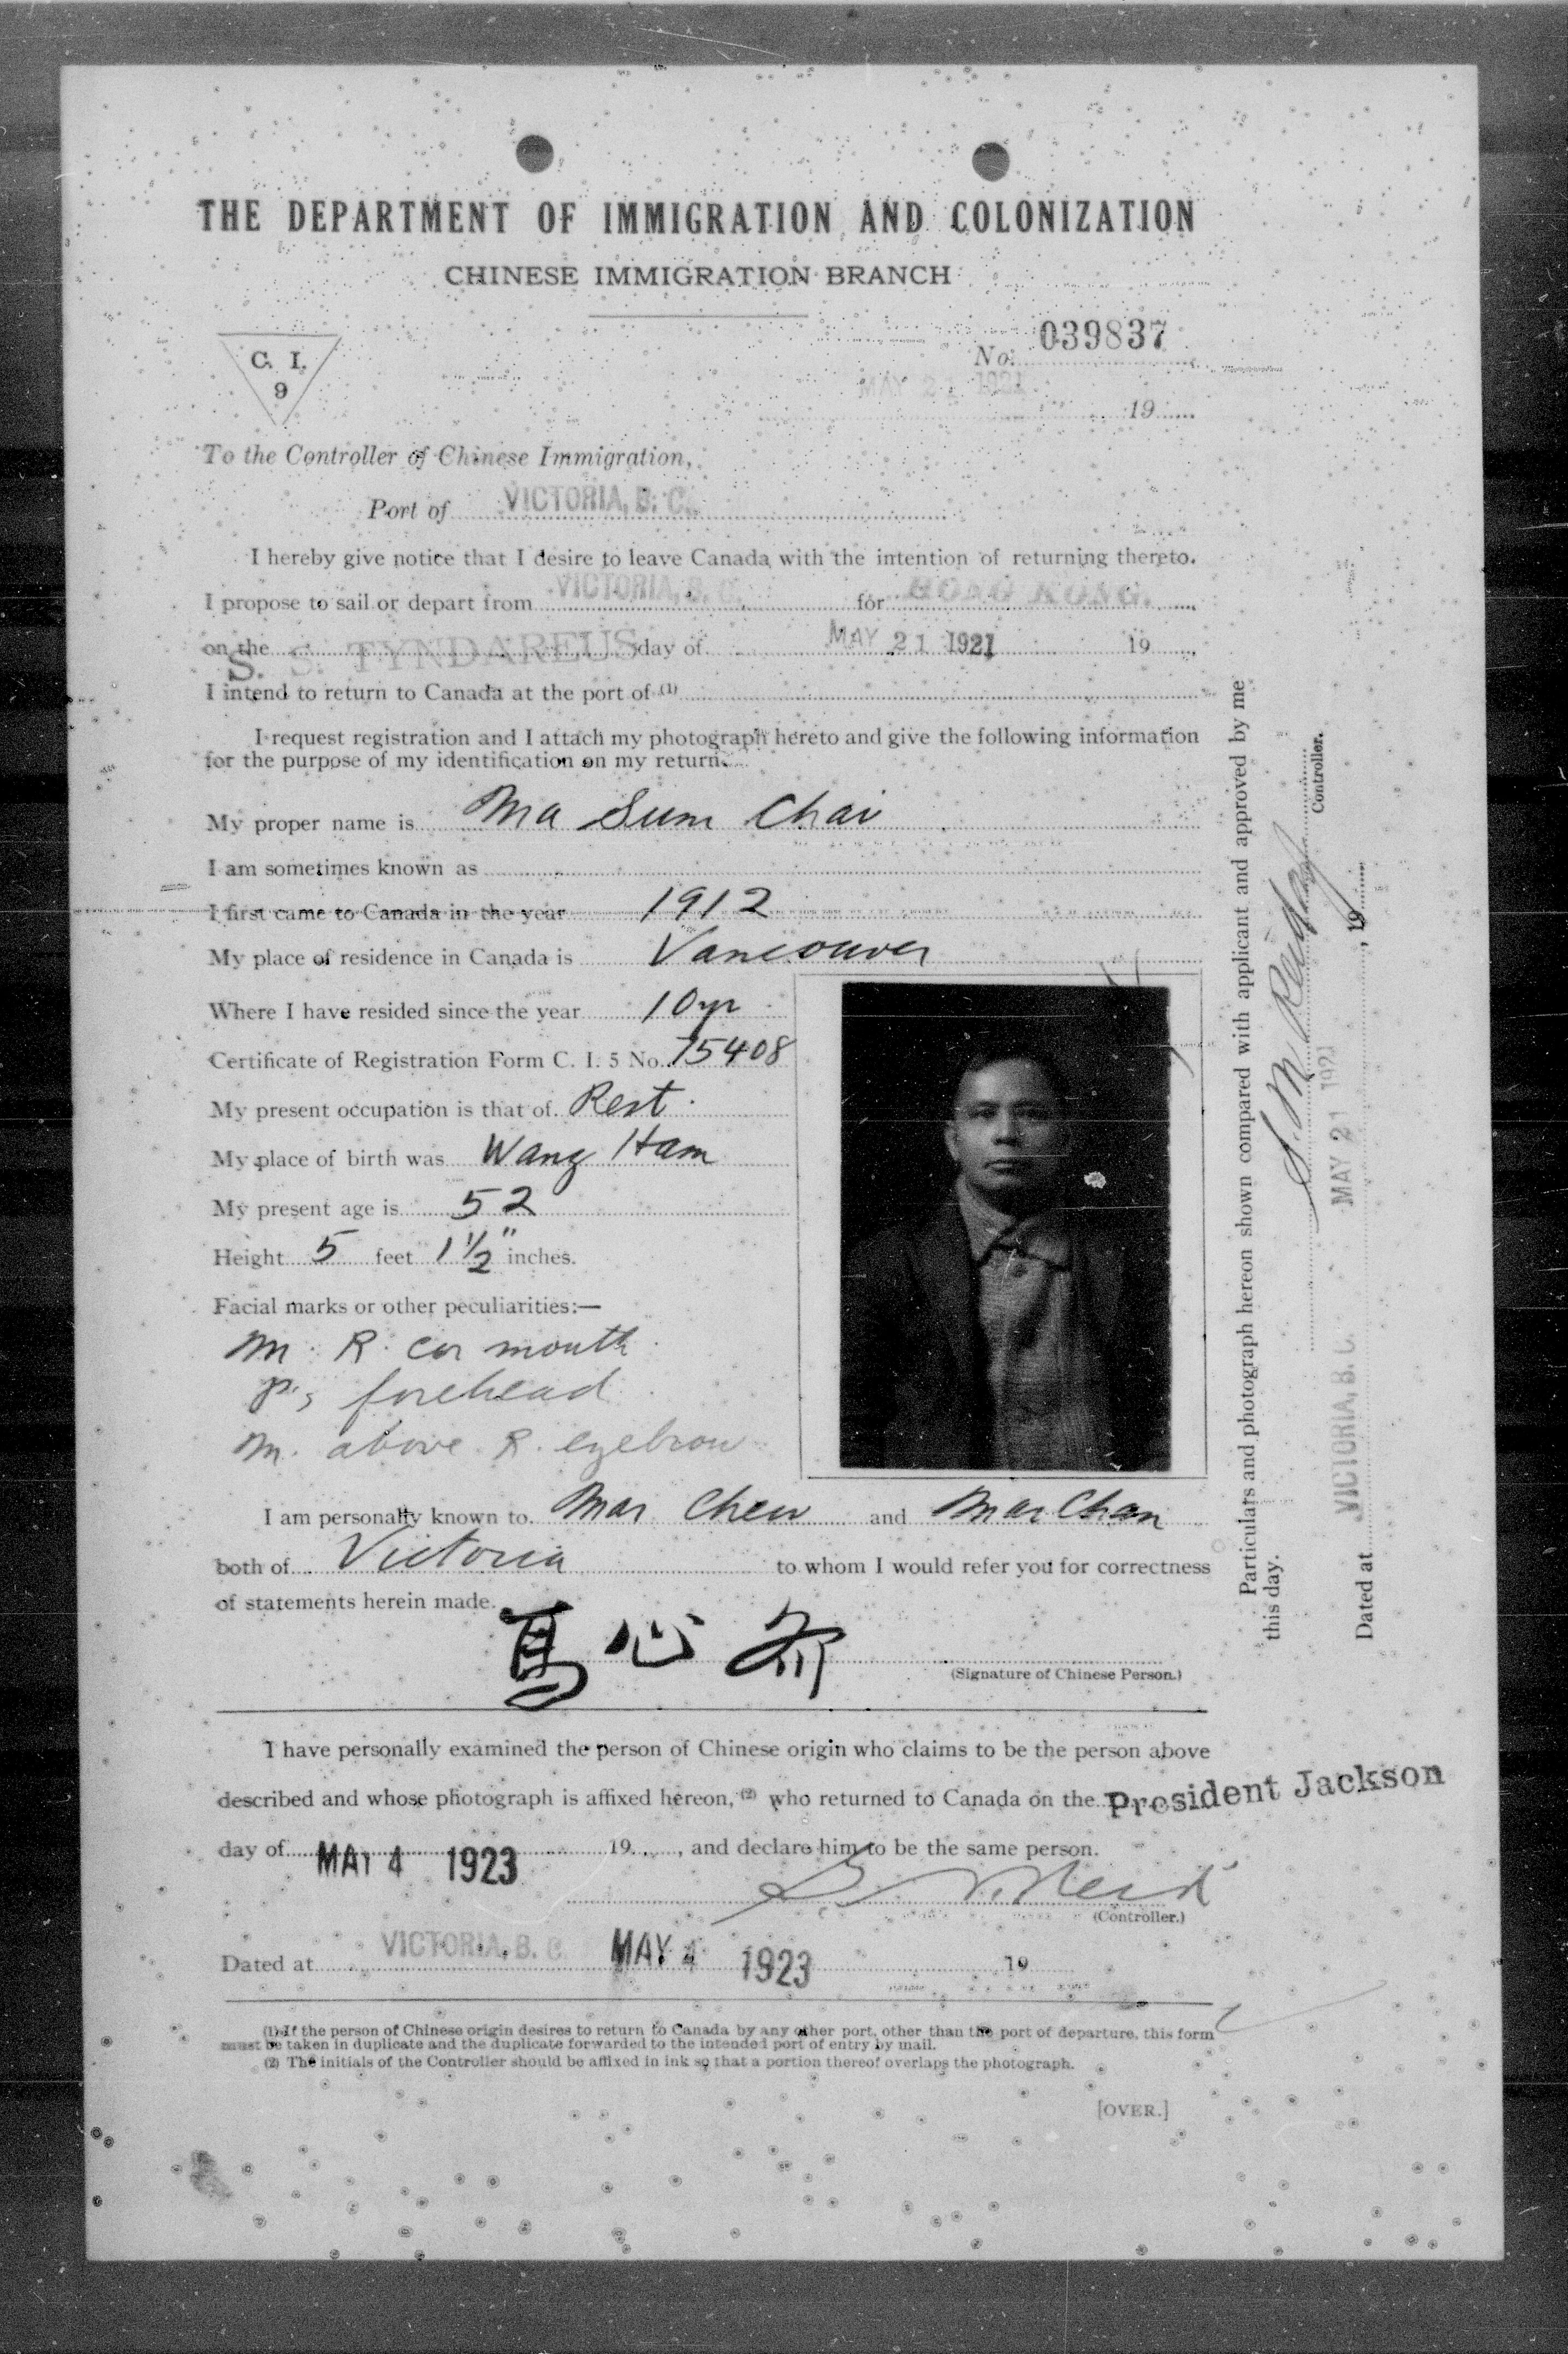 THE DEPARTMENT OF IMMIGRATION AND COLONIZATION
CHINESE IMMIGRATION BRANCH
C. I.
9
No. 039837
MAY 21 1921
19
To the Controller of Chinese Immigration,
Port of VICTORIA, B. C.
I hereby give notice that I desire to leave Canada with the intention of returning thereto.
I propose to sail or depart from VICTORIA, B. C. for HONG KONG.
on the S. S. TYNDAREUS day of MAY 21 1921 19
I intend to return to Canada at the port of (1)
I request registration and I attach my photograph hereto and give the following information
for the purpose of my identification on my return.
My proper name is Ma Sum Chai
I am sometimes known as
I first came to Canada in the year 1912
My place of residence in Canada is Vancouver
Where I have resided since the year 10 yr
Certificate of Registration Form C. I. 5 No. 75408
My present occupation is that of Rest.
My place of birth was Wang Ham
My present age is 52
Height 5 feet 1 1/2" inches.
Facial marks or other peculiarities:—
M. R. cor mouth.
P's forehead.
M. above R. eyebrow
I am personally known to Mar Chew and Mar Chan
both of Victoria to whom I would refer you for correctness
of statements herein made.
馬心
(Signature of Chinese Person.)
I have personally examined the person of Chinese origin who claims to be the person above
described and whose photograph is affixed hereon, (2) who returned to Canada on the President Jackson
day of MAY 4 1923 19, and declare him to be the same person.
(Controller.)
Dated at VICTORIA, B. C. MAY 4 1923 19
(1) If the person of Chinese origin desires to return to Canada by any other port, other than the port of departure, this form
must be taken in duplicate and the duplicate forwarded to the intended port of entry by mail.
(2) The initials of the Controller should be affixed in ink so that a portion thereof overlaps the photograph.
[OVER.]
Particulars and photograph hereon shown compared with applicant and approved by me
this day.
Controller.
Dated at VICTORIA, B. C. MAY 21 1921, 19